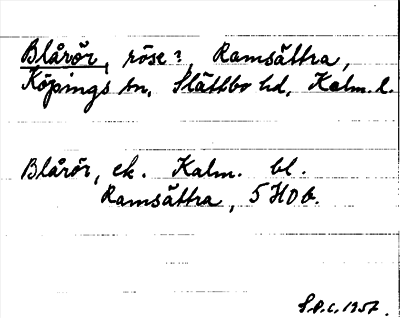 Blårör, röse?, Ramsättra,
Köpings sn, Slättbo hd, Kalm. l.
Blårör, ek. Kalm. bl.
Ramsättra, 5 H 0 b.
S.P.C. 1957.